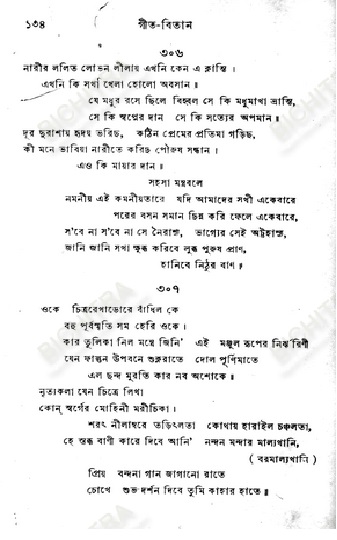 ১৩৪ গীত-বিতান
৩০৬
নারীর ললিত লোভন লীলায় এখনি কেন এ ক্লান্তি।
এখনি কি সখা খেলা হোলো অবসান।
যে মধুর রসে ছিলে বিহ্বল সে কি মধুমাখা ভ্রান্তি,
সে কি স্বপ্নের দান সে কি সত্যের অপমান।
দূর দুরাশায় হৃদয় ভরিছ, কঠিন প্রেমের প্রতিমা গড়িছ,
কী মনে ভাবিয়া নারীতে করিছ পৌরুষ সন্ধান।
এও কি মায়ার দান।
সহসা মন্ত্রবলে
নমনীয় এই কমনীয়তারে যদি আমাদের সখী একেবারে
পরের বসন সমান ছিন্ন করি ফেলে একেবারে,
স'বে না স'বে না সে নৈরাশ্য, ভাগ্যের সেই অট্টহাস্য,
জানি জানি সখা ক্ষুব্ধ করিবে লুব্ধ পুরুষ প্রাণ,
হানিবে নিঠুর বাণ।
৩০৭
ওকে চিত্ররেখাডোরে বাঁধিল কে
বহু পূর্বস্মৃতি সম হেরি ওকে।
কার তুলিকা নিল মন্ত্রে জিনি' এই মঞ্জুল রূপের নির্ঝরিণী
যেন ফাল্গুন উপবনে শুক্লরাতে দোল পূর্ণিমাতে
এল ছন্দ মুরতি কার নব অশোকে।
নৃত্যকলা যেন চিত্রে লিখা
কোন্ স্বর্গের মোহিনী মরীচিকা।
শরৎ নীলাম্বরে তড়িৎলতা কোথায় হারাইল চঞ্চলতা,
হে স্তব্ধ বাণী কারে দিবে আনি' নন্দন মন্দার মাল্যখানি,
( বরমাল্যখানি )
প্রিয় বন্দনা গান জাগানো রাতে
চোখে শুভ দর্শন দিবে তুমি কাহার হাতে॥
BICHITRA